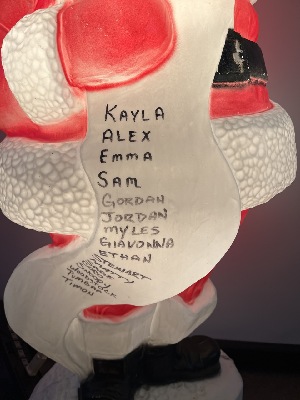 KAYLA
ALEX
Emma
SAM
GORDAN
JORDAN
MYLES
GIAVONNA
ETHAN
STEWART
TIMON